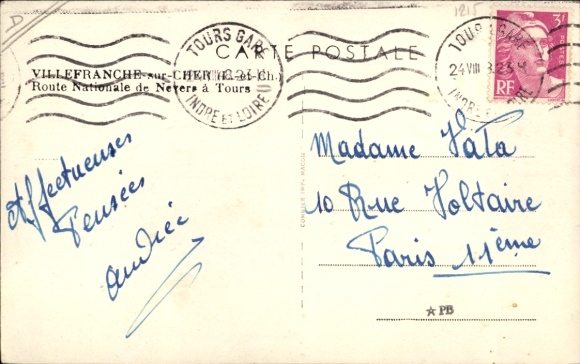 D
1215
CARTE POSTALE
TOURS GARE
INDRE ET LOIRE
TOURS GARE
24 VIII
INDRE ET LOIRE
3F
RF
VILLEFRANCHE-sur-CHER (L.-et-Ch.)
Route Nationale de Nevers à Tours
Affectueuses
Pensées
Andrée
Madame Vata
10 Rue Voltaire
Paris 11ème
COMBIER IMP. MACON
★ PB